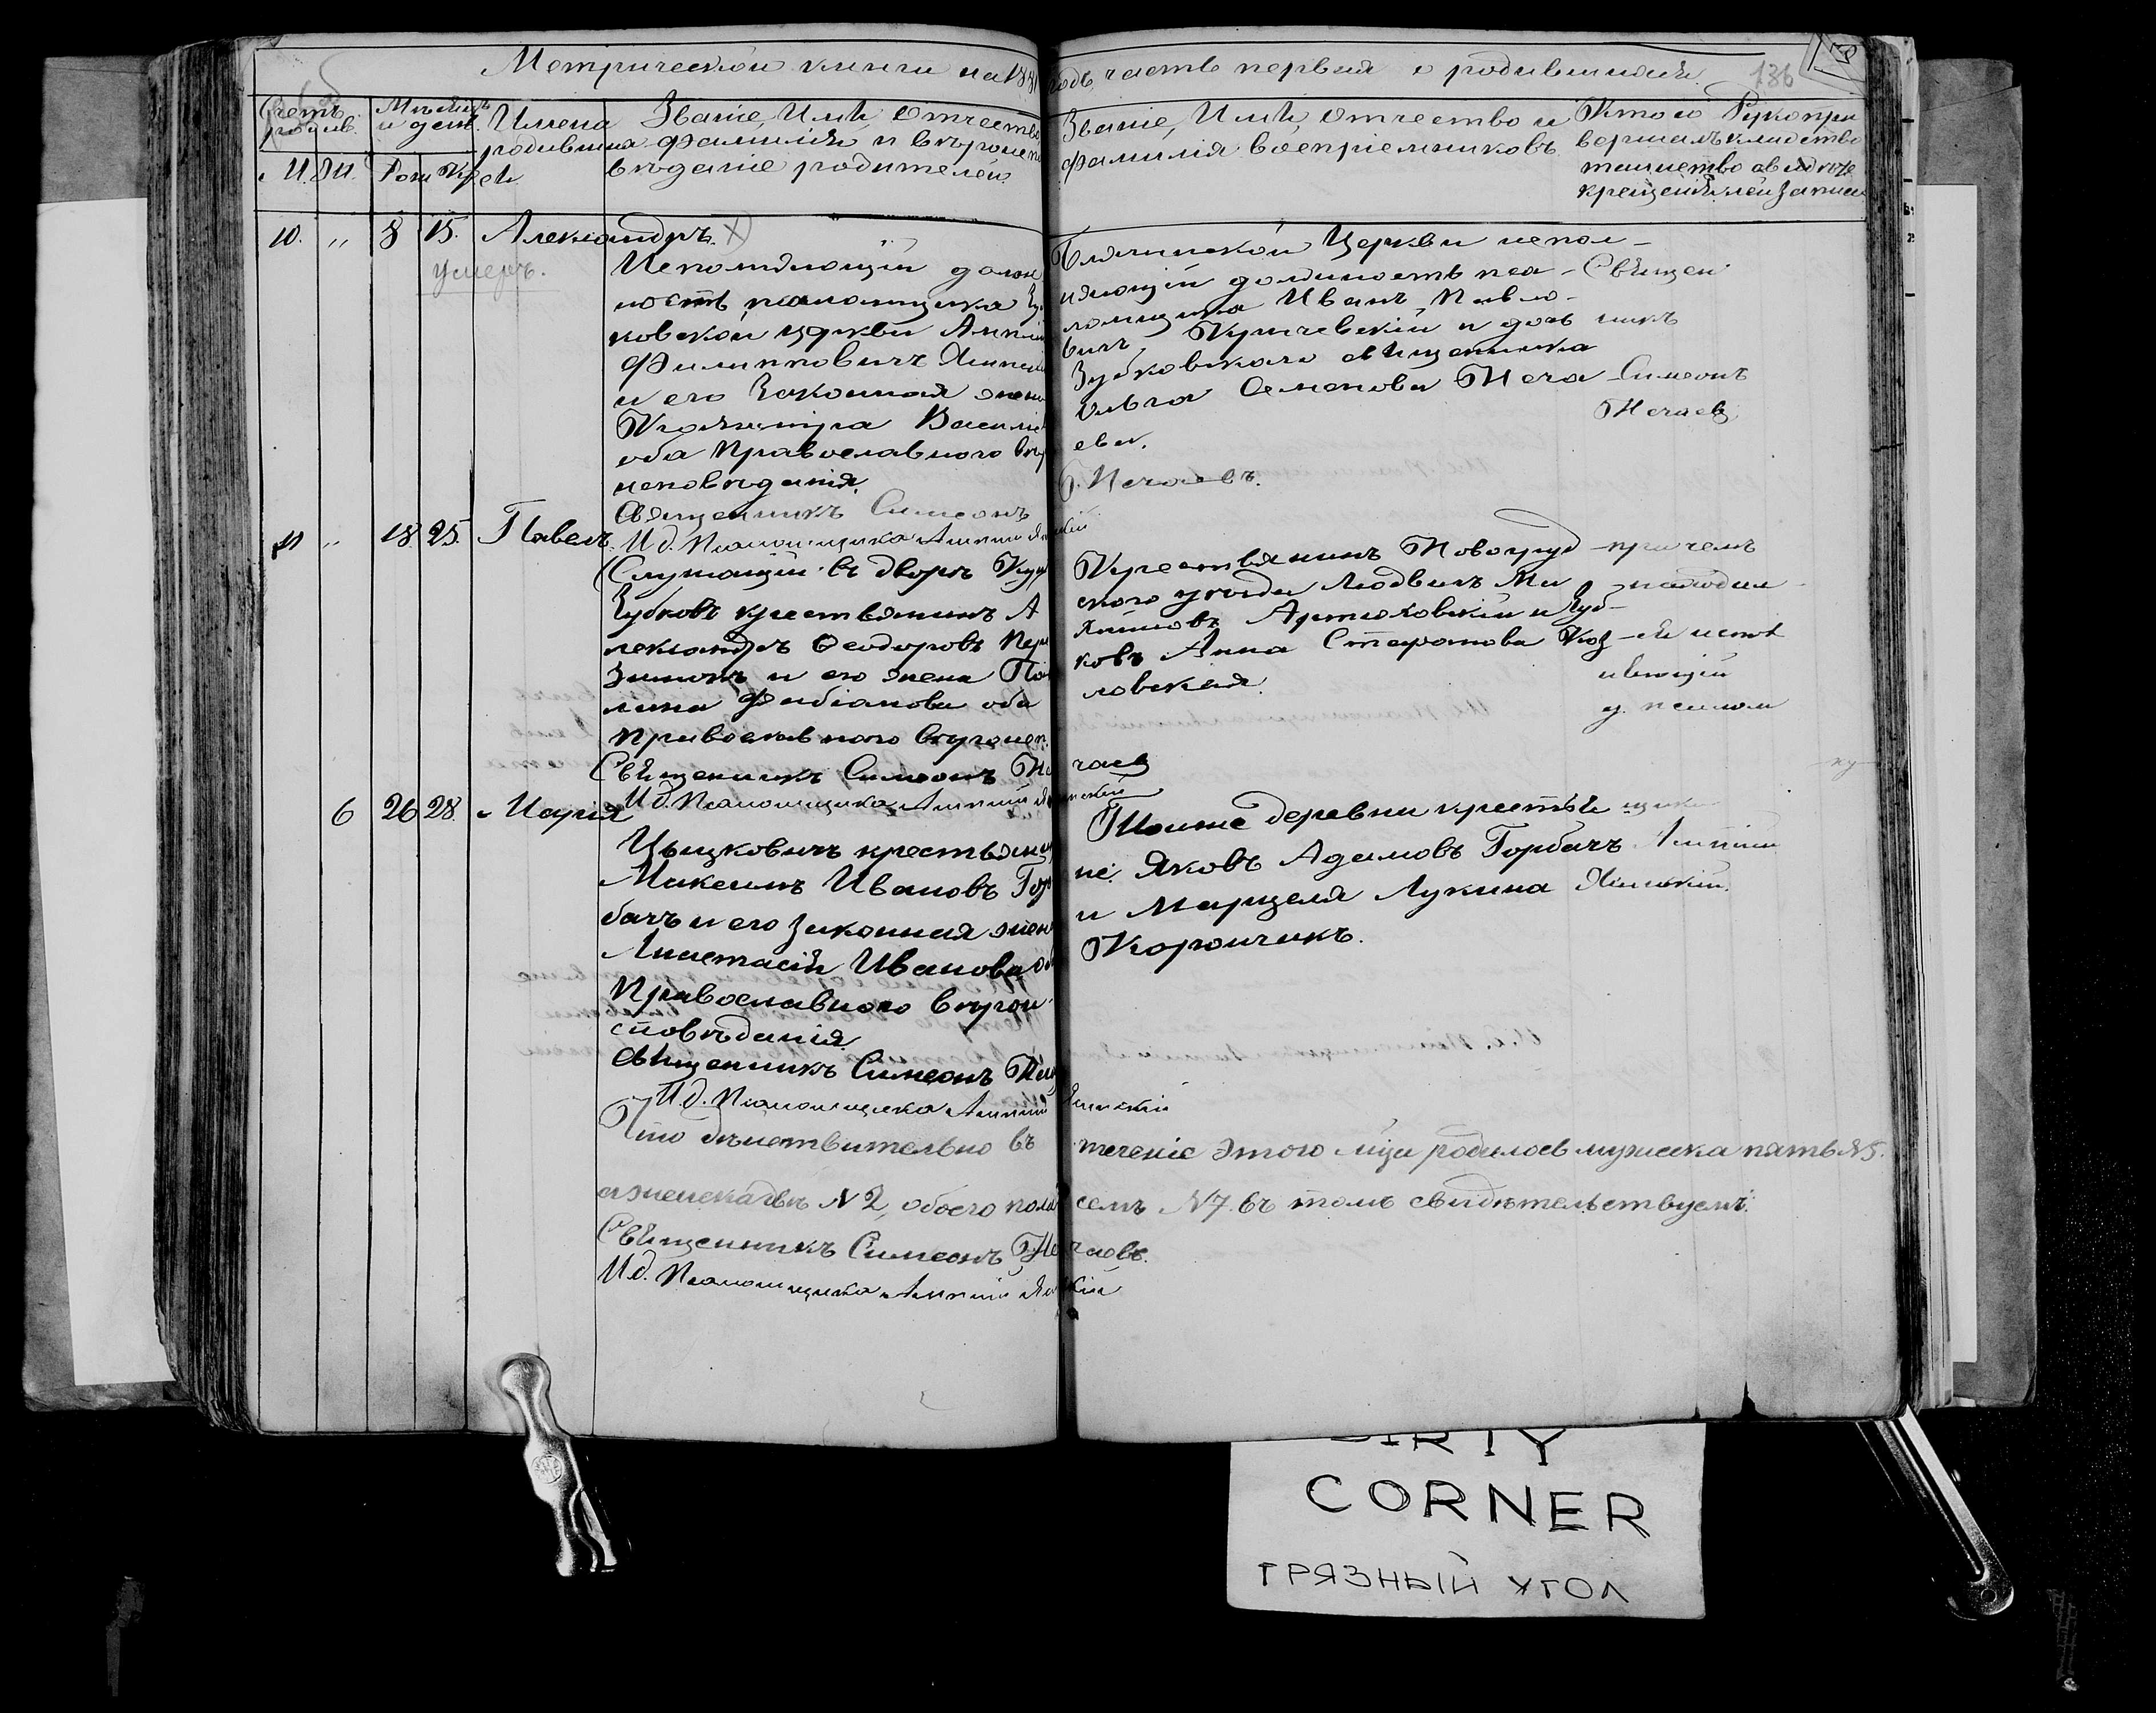 Метрической книги на 18
годъ часть первая о родившихся
136
Счетъ родив.
Мѣсяцъ и день.
М. Ж.
Рож Кр
Имена родившихся
Званіе, Имя, Отчество
фамилія и вѣроиспо
вѣданіе родителей.
Званіе, Имя, Отчество и
фамилія воспріемниковъ
Кто со
вершалъ
таинство
крещенія
Рукопри
кладство
10. " 8 15. Александръ.
умеръ.
Исполняющій долж
ность псаломщика Зу
ковской церкви
Филипповичъ
и его Законная жена
Клеопатра
оба Православного вѣр
исповѣданія.
Священникъ Симеонъ
И д. Псаломщика
Церкви испол-
няющій должность пса-
ломщика Иванъ Павло-
вичъ Кричевскій и дочь
Зубковскаго священника
Ольга Семенова Неча
ева.
Б. Нечаевъ.
Священ
никъ
Симеонъ
Нечаев
11 " 18 25. Павелъ.
Служащій въ дворѣ
Зубковъ крестьянинъ А
лександръ Ѳеодоровъ
и его жена
Фабіанова оба
православного вѣроисп.
Священникъ Симеонъ Не
чаев
И д. Псаломщика
Крестьянинъ Новогруд
ского уѣзда Людвигъ
и Зуб-
ковъ Анна Стефанова Коз
ловская.
при чемъ
находил
ся испол
няющій
д. псалом
6 26 28. Марія
Цышковичъ крестьянинъ
Максимъ Ивановъ Гор
бачъ и его законная жена
Анастасія Иванова об
Православного вѣрои
сповѣданія.
Священникъ Симеонъ
И д. Псаломщика
Тоиже деревни крестья
не Яковъ Адамовъ Горбачъ
и Марцеля Лукина
Корончикъ.
щика
Что дѣйствительно въ
теченіе этого мца родилось мужеска пять N5.
а женска двѣ N 2, обоего пола
семь N 7. въ томъ свидѣтельствуемъ:
Священникъ Симеонъ Б. Не
чаевъ.
И д. Псаломщика
DIRTY
CORNER
ГРЯЗНЫЙ УГОЛ